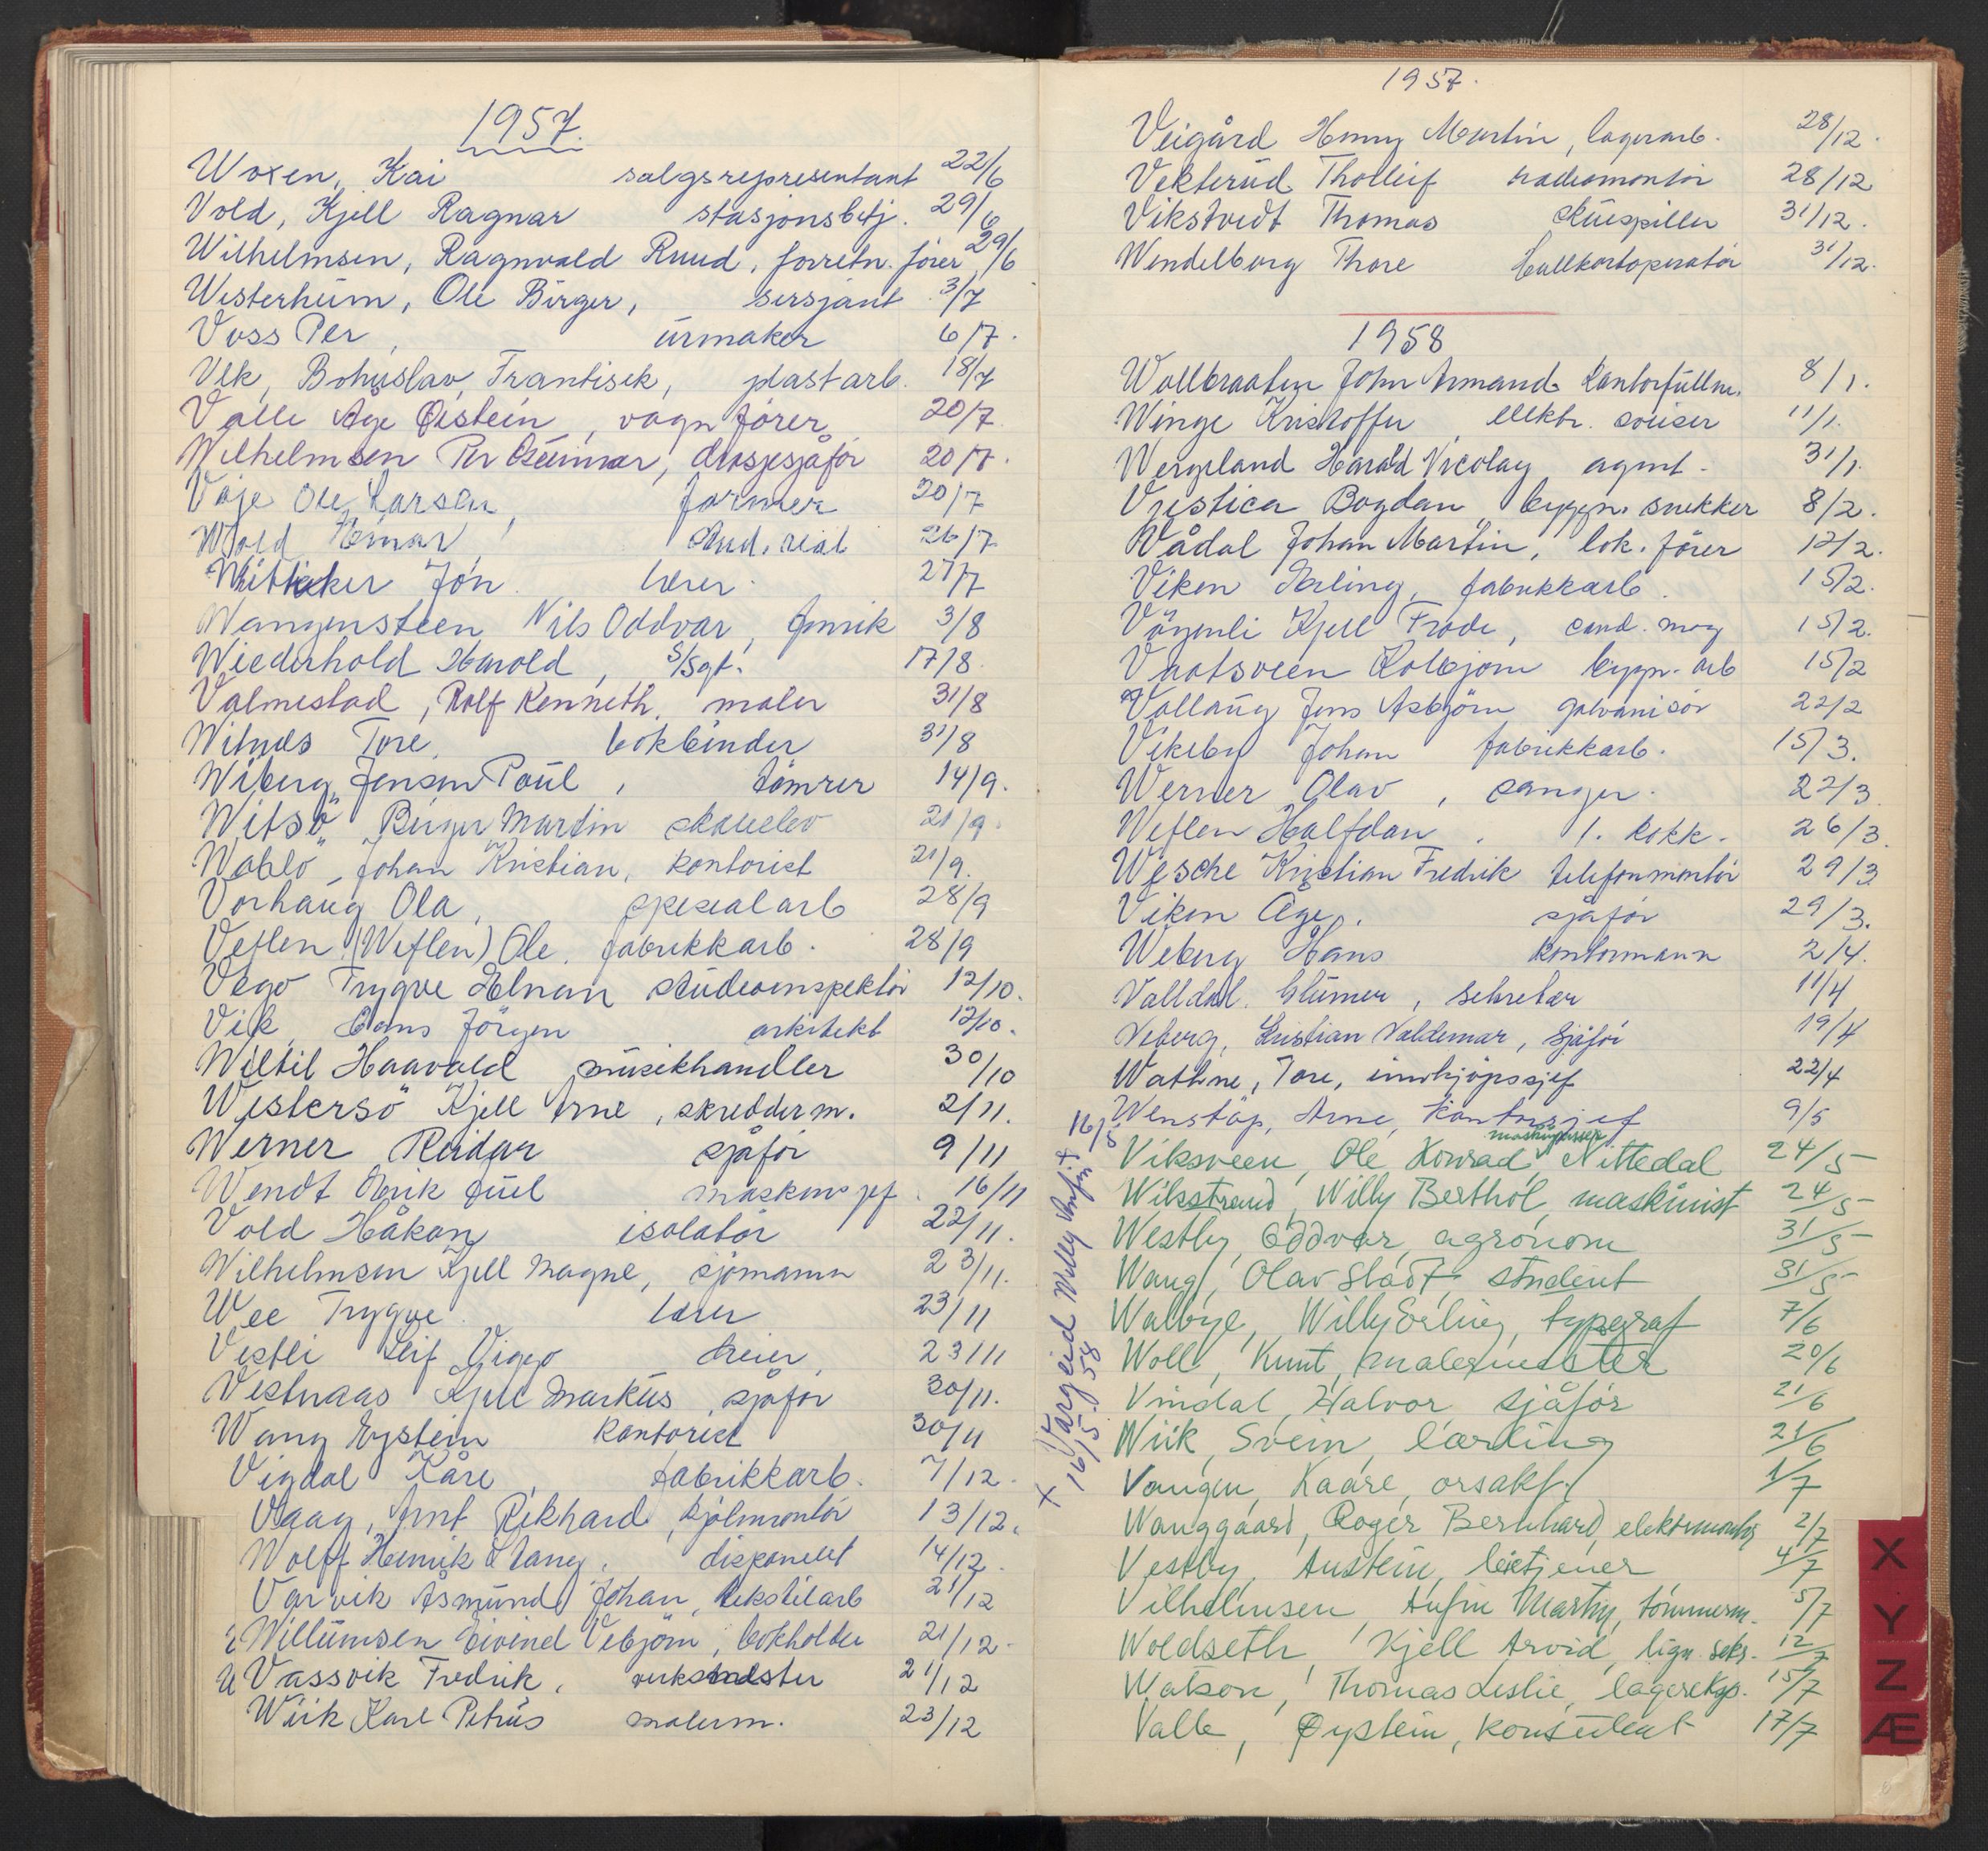 1957.
Woxen, Kai salgsrepresentant 22/6
Vold, Kjell Ragnar stasjonsbetj. 29/6
Wilhelmsen, Ragnvald Ruud, forretn. fører 29/6
Westerheim, Ole Birger, sersjant 3/7
Voss Per, urmaker 6/7.
Vlk, Bohuslav, Frantisek, plastarb. 18/7
Valle Åge Øistein, vognfører 20/7
Wilhelmsen Per Gunnar, drosjesjåfør 20/7.
Våje Ole Larsen, farmer 20/7
Wold Einar, stud. real 26/7
Wittaker Jon. lærer. 27/7
Wangensteen, Nils Oddvar, Henrik 3/8
Wiederhold Harold, S/Sgt. 17/8.
Valmestad, Rolf Kenneth, maler 31/8
Witnes Tore, bokbinder 31/8
Wiberg, Jensen Poul, tømrer 14/9.
Witsö, Birger Martin skoleelev 21/9.
Wablo, Johan Kristian, kontorist 21/9.
Vorhaug Ola, spesialarb 28/9
Veflen (Weflen) Ole, fabrikkarb. 28/9
Vego Trygve Elnan studieinspektör 12/10.
Vik, Hans Jörgen arkitekt 12/10.
Wiltil Haavald musikkhandler 30/10
Westersö Kjell Arne, skredderm. 2/11.
Werner Reidar sjåför 9/11
Wendt Erik Juel maskinsjef. 16/11
Vold Håkon isolatör 22/11.
Wilhelmsen Kjell Magne, sjömann 23/11.
Wee Trygve. lærer 23/11
Vestli Leif Viggo dreier, 23/11
Vestnaas Kjell Markus, sjåför 30/11.
Wang Eystein kontorist 30/11
Vigdal Kåre, fabrikkarb. 7/12.
Vaag, Arnt Rikhard, kjölmontör 13/12.
Wolff Henrik Stang, disponent 14/12.
Varvik Åsmund Johan, tekstilarb 21/12
Willumsen Eivind Vebjörn, bokholder 21/12.
Vassvik Fredrik, verksmester 21/12
Wiik Karl Petrus malerm. 23/12
1957.
Veigård Henry Martin, lagerarb. 28/12.
Vekterud Tholleif radiomontör 28/12
Vikstvedt Thomas skuespiller 31/12.
Wendelborg Thore hullkortoperatör 31/12.
1958
Wollbraaten John Armand. kontorfullm. 8/1.
Winge Kristoffer, elektr. sveiser 11/1.
Wergeland Harald Nicolay agent. 31/1.
Vrestica Bogdan byggn. snekker 8/2.
Vådal Johan Martin, lok. fører 12/2.
Viken Erling, fabrikkarb. 15/2.
Vågenli Kjell Frode, cand. mag 15/2.
Vaatsveen Kolbjørn byggn. arb 15/2
Vollaug Jens Asbjörn galvanisör 22/2
Vikeby Johan fabrikkarb. 15/3.
Werner Olav, sanger. 22/3
Weflen Halfdan, 1. kokk. 26/3.
Wesche Kristian Fredrik telefonmontör 29/3
Viken Åge, sjåför 29/3.
Weberg Hans kontormann 2/4.
Valldal. Glümer, sekretær 11/4
Veberg, Kristian Valdemar, sjåför 19/4
Wathne, Tore, innkjöpssjef 22/4
Wenstöp, Arne, kontorsjef 9/5
16/5 +
maskinpasser
Viksveen, Ole Konrad, Nittedal 24/5
Wikstrand, Willy Berthol, maskinist 24/5
Westby, Oddvar, agronom 31/5
Wang, Olav Stadt, student 31/5
Walbye, Willy Erling, typograf 7/6
Woll, Knut, malermester 20/6
Vindal, Halvor sjåför 21/6
Wiik, Svein, lærling 21/6
Vangen, Kaare, orsakf. 1/7
Wanggaard, Roger Bernhard, elektromontör 2/7
Vestby, Austein, leietjener 4/7
Vilhelmsen, Anfin Martin, tömmerm. 5/7
Woldseth, Kjell Arvid, lign. sekr. 12/7
Watson, Thomas Leslie, lagereksp. 15/7
Valle, Øystein, konsulent 17/7
+ Vargeid Willy Anfin
16/5. 58
X
Y
Z
Æ